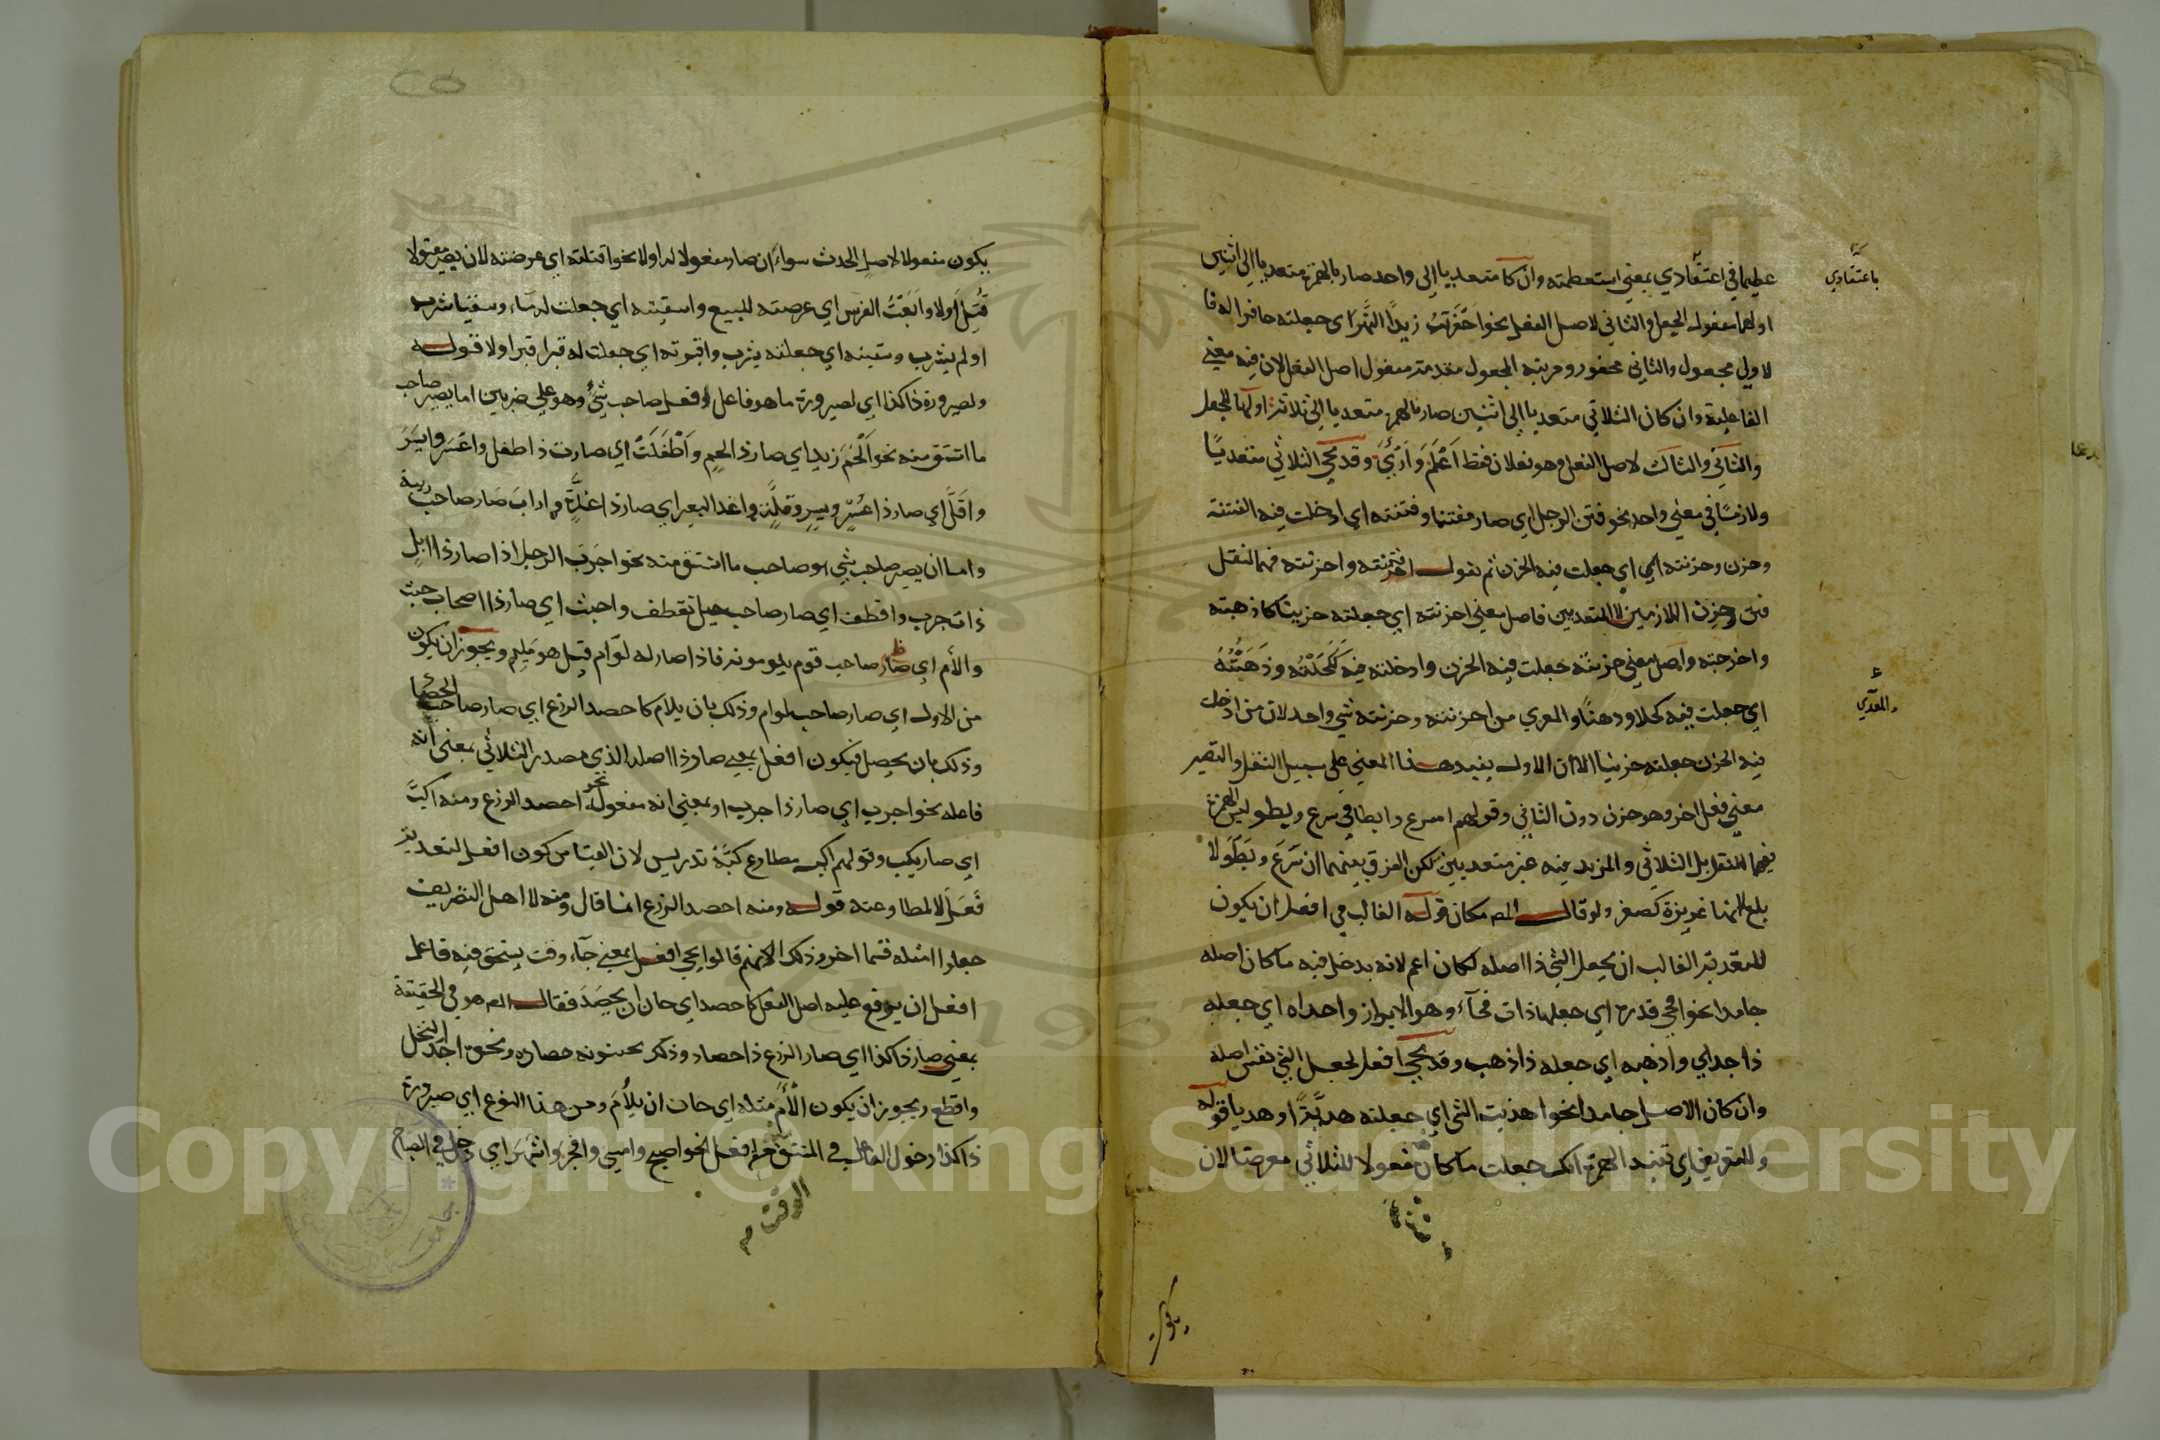 عظيما في اعتقادي بمعني استعظمته وان كا متعديا الي واحد صار بالهمزة متعديا الي اثنين
اولهما مفعول الجعل والثاني لاصل الفعل نحو احفرت زيدا النهر اي جعلته حافرا له فا
لاول مجعول والثاني محفور ومرتبة المجعول مقدمة مفعول اصل الفعل لان فيه معني
الفاعلية وان كان الثلاثي متعديا الي اثنين صار بالهمزة متعديا الي ثلاثة اولها للجعل
والثاني والثالث لاصل الفعل وهو فعلان فقط اَعْلَمَ وَاَرَي وقد يجي الثلاثي متعديًا
ولازمًا في معني واحد نحو فتن الرجل اي صار مفتتنا وفتنته اي ادخلت فيه الفتنة
وحزن وحزنته اي جعلت فيه الحزن ثم تقول افتنته واحزنته فهما لنقل
فتن وحزن اللازمين لا المتعديين فاصل معني احزنته اي جعلته حزينا كاذهبته
واخرجته واصل معني حزنته جعلت فيه الحزن وادخلته فيه كَكَحَلْتُه وَدَهَنْتُهُ
اي جعلت فيه كحلا ودهنًا والمعري من احزنته وحزنته شي واحد لان من ادخلت
فيه الحزن جعلته حزينا الا ان الاول يفيد هذا المعني علي سبيل النقل والتصيير
معني فعل اخر وهو حزن دون الثاني وقولهم اسرع وابطا في سرع وبطو ليس الهمزة
فيهما للنقل بل الثلاثي والمزيد فيه غير متعديين لكن الفرق بينهما ان سَرُعَ وبَطُؤَ لا
بلغ لانهما غريزة كصغر ولو قال المص مكان قوله الغالب في افعل ان يكون
للتعدية الغالب ان يجعل الشي ذا اصله لكان اعم لانه يدخل فيه ما كان اصله
جامدا نحو افحي قدره اي جعلها ذات فحآء وهو الابزار واجداه اي جعله
ذا جداي واذهبه اي جعله ذا ذهب وقد يجي افعل لجعل الشي نفس اصله
وان كان الاصل جامدا نحو اهديت الشي اي جعلته هدية او هديا قوله
وللتعريض اي تفيد الهمزة انك جعلت ما كان مفعولا للثلاثي معرضا لان
باعتقادي
والمعدي
يكون مفعولا لاصل الحدث سواء ان صار مفعولا له اولا نحو اقتلته اي عرضته لان يصير مقتولا
قُتِلَ اولا واَبَعْتُ الفرس اي عرضته للبيع واسقيته اي جعلت له مآء وسقيا شرب
اولم يشرب وسقيته اي جعلته يشرب واقبرته اي جعلت له قبرا قبر اولا قوله
ولصيرورة ذا كذا اي لصيرورة ما هو فاعل افعل صاحب شيْ وهو علي ضربين اما يصير صاحب
ما اشتق منه نحو اَلْحَمَ زيد اي صار ذا لحم وَاَطْفَلَتْ اي صارت ذا طفل واعْسَرَ وايسَرَ
واَقَلَّ اي صار ذا عُسْرٍ ويسر وقلّة واغد البعير اي صار ذا غدَّةٍ وارابَ صَار صاحب ريبة
واما ان يصير صاحب شي هو صاحب ما اشتق منه نحو اجرَبَ الرجل اذا صار ذا ابل
ذات جرب واقطف اي صار صاحب خيل تقطف واخبث اي صار ذا اصحاب خبث
والأم اي صار صاحب قوم يلومونه فاذا صار له لوّام قيل هو مُلِيم ويجوز ان يكون
من الاول اي صار صاحب لوام وذلك بان يلام كاحصد الزرع اي صار صاحب الحصاد
وذلك بان يحصل فيكون افعل بمعني صار ذا اصله الذي مصدر الثلاثي بمعني انه
فاعله نحو اجرب اي صار ذا جرب او بمعني انه مفعوله نحو احصد الزرع ومنه اكبَّ
اي صار يكب وقولهم اكب مطاوع كبَّهُ تدريس لان القياس كون افعل لتعدية
فَعَلَ لا لمطاوعته قوله ومنه احصد الزرع انما قال ومنه لا اهل التصريف
جعلوا امثله قسما اخر وذلك لانهم قالوا يجي افعل بمعني جآء وقت يستحق فيه فاعل
افعل ان يوقع عليه اصل الفعل كاحصد اي حان ان يحصَدَ فقال المص هو في الحقيقة
بمعني صار ذا كذا اي صار الزرع ذا حصاد وذلك بحينونة حصاده ونحوه اجد النخل
واقطع ويجوز ان يكون الْأَمَ مثله اي حان ان يلُامَ ومن هذا النوع اي صيرورة
ذا كذا دخول الفاعل في المشتق منه افعل نحو اصبح وامسي وافجرَ واشهَرَ اي دخل في الصباح
الوقت
Copyright © King Saud University
1957